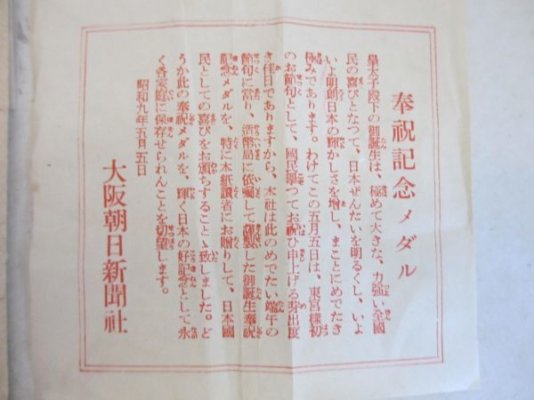 奉祝記念メダル
皇太子殿下の御誕生は、極めて大きな、力强い全國
民の喜びとなつて、日本ぜんたいを明るくし、いよ
いよ明朗日本の輝かしさを增し、まことにめでたき
極みであります。わけてこの五月五日は、東宮樣初
のお節句として、國を擧つてお祝ひ申上げる芽出度
き佳日でありますから、本社は此のめでたい端午の
節句に當り、造幣局に依囑して謹製した御誕生奉祝
記念メダルを、特に本紙讀者にお贈りして、日本國
民としての喜びをお頒ちすることゝ致しました。ど
うか此の奉祝メダルを、輝く日本の好記念として永
く各家庭に保存せられんことを切望します。
昭和九年五月五日
大阪朝日新聞社